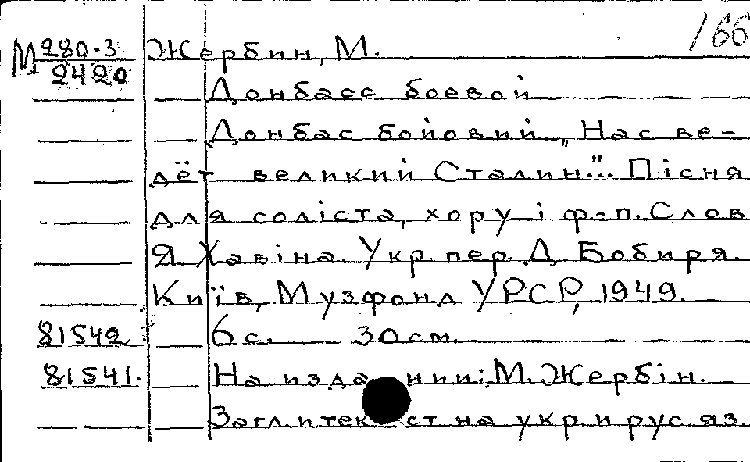 166
М 280-3 Жербин, М.
2420
Донбасс боевой
Донбас бойовий „Нас ве-
дёт великий Сталин"... Пісня
для соліста, хору і ф-п. Слов
Я Хавіна. Укр. пер. Д. Бобиря.
Київ, Музфонд УРСР, 1949.
81542 6 с. 30 см.
81541. На издании: М. Жербін.
Загл. и текст на укр. и рус. яз.